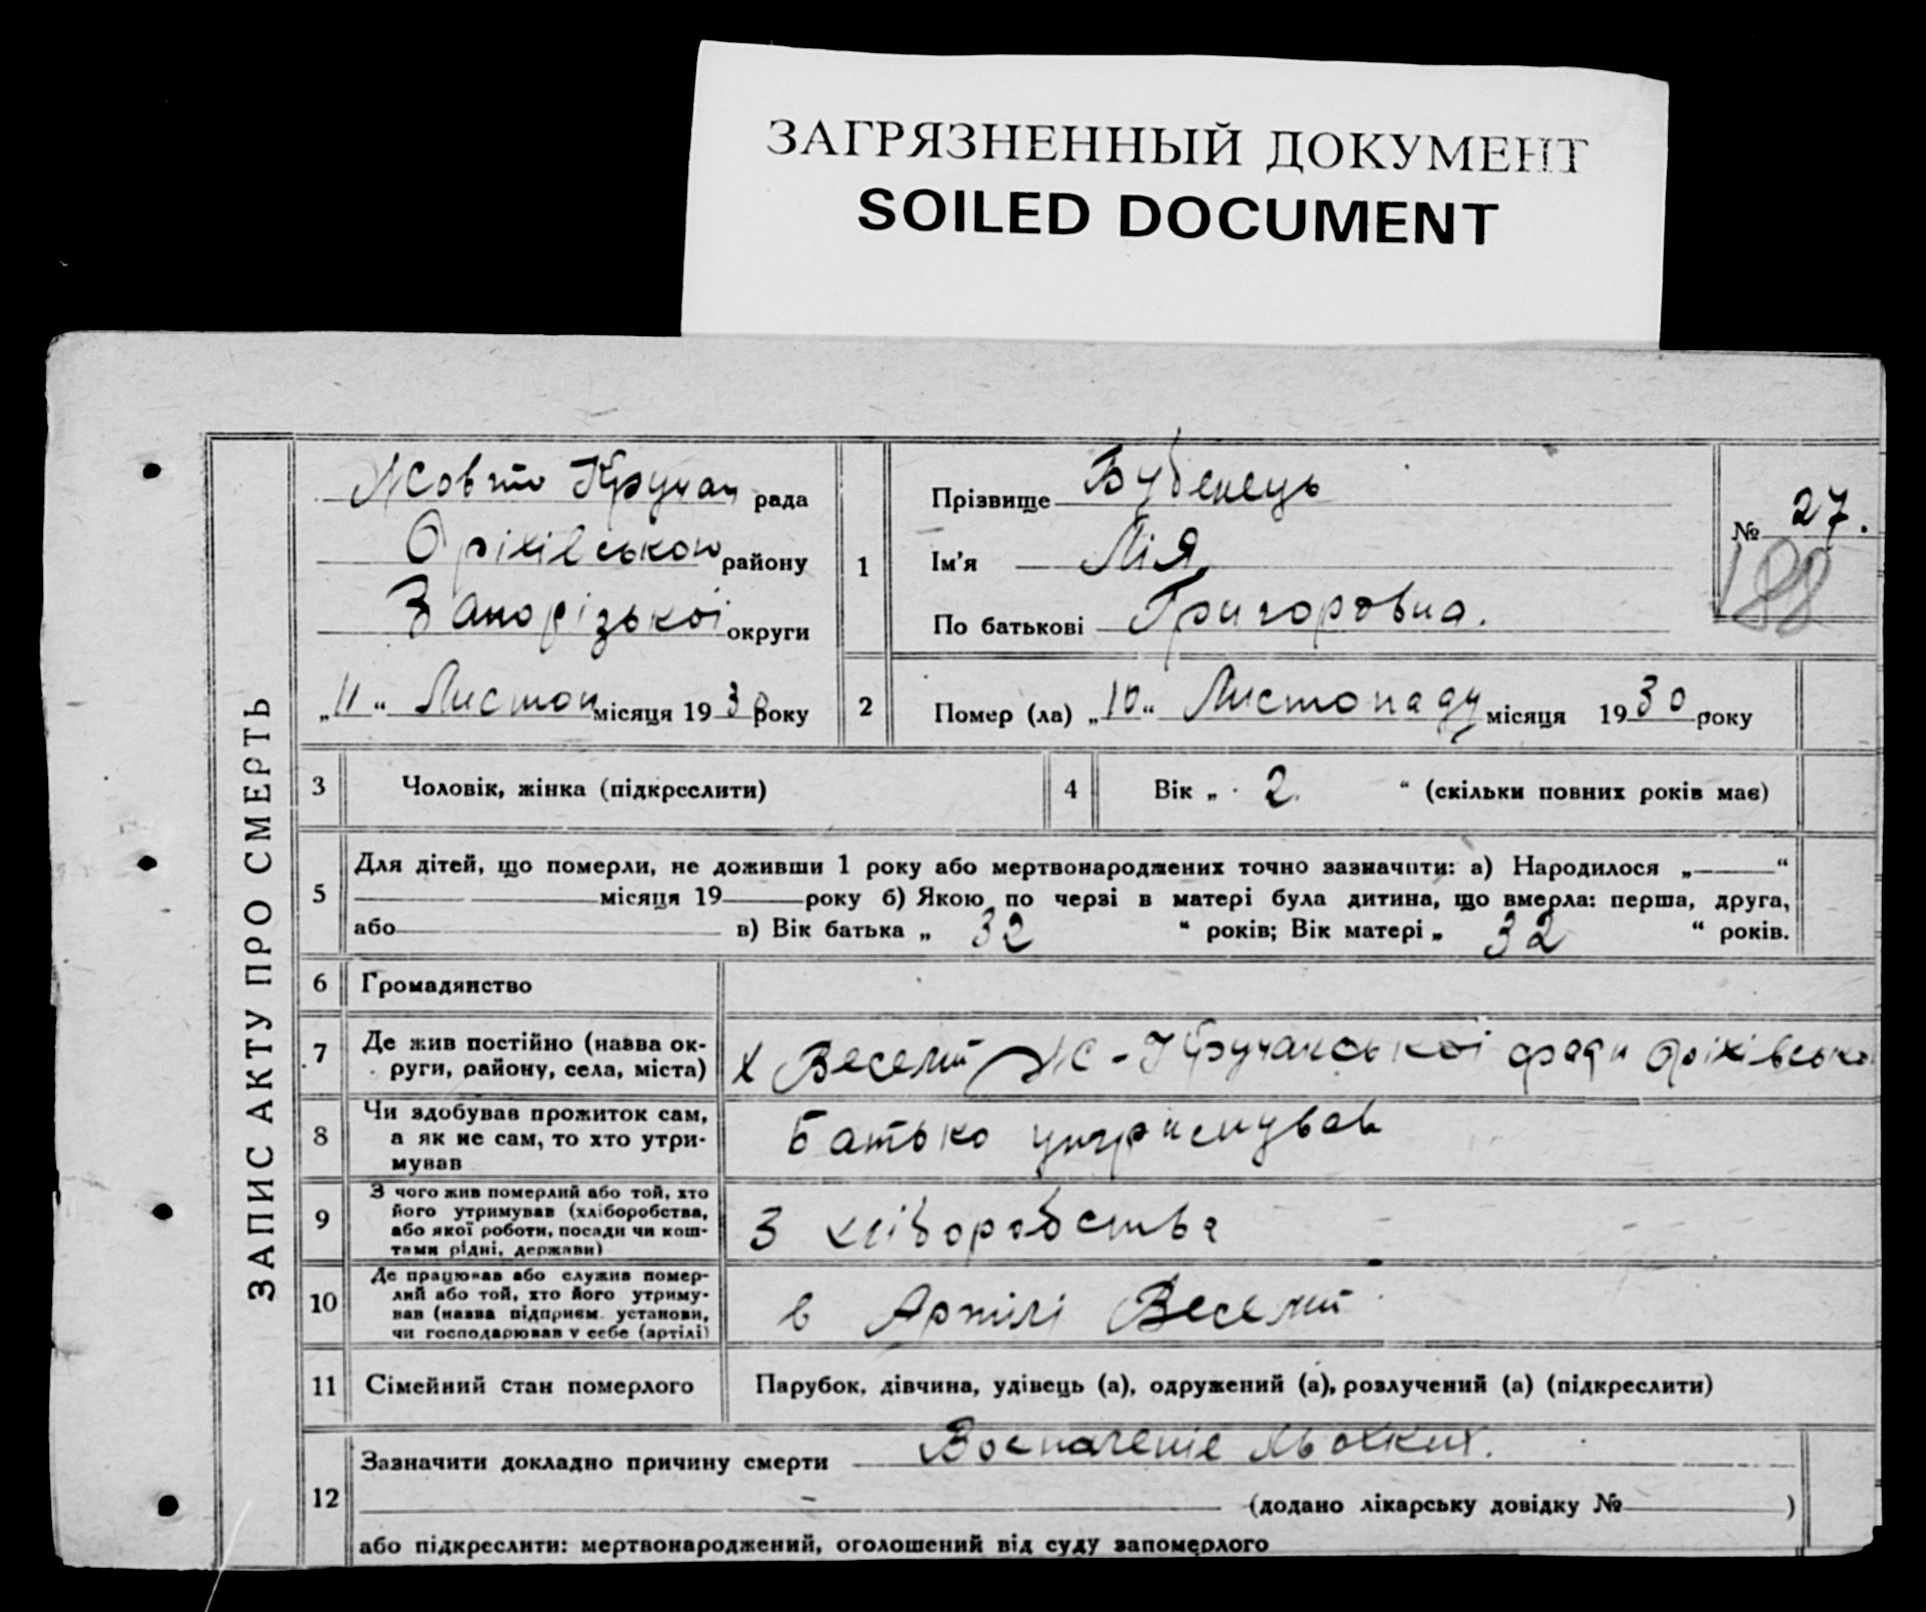 ЗАГРЯЗНЕННЫЙ ДОКУМЕНТ
SOILED DOCUMENT
ЗАПИС АКТУ ПРО СМЕРТЬ
Жовто Кручан рада
Оріхівською району
Запорізької округи
„11“ Листоп місяця 1930 року
1
Прізвище Бубенець
Ім'я Лія
По батькові Григоровна.
№ 27.
188
2
Помер (ла) „10“ Листопаду місяця 1930 року
3 Чоловік, жінка (підкреслити)
4 Вік „ 2 “ (скільки повних років має)
5 Для дітей, що померли, не доживши 1 року або мертвонароджених точно зазначити: а) Народилося „ “
місяця 19 року б) Якою по черзі в матері була дитина, що вмерла: перша, друга,
або в) Вік батька „ 32 “ років; Вік матері „ 32 “ років.
6 Громадянство
7 Де жив постійно (назва ок-
руги, району, села, міста)
х Веселий Ж-Кручанської ради Оріхівсько
8 Чи здобував прожиток сам,
а як не сам, то хто утри-
мував
Батько утримував
9 З чого жив померлий або той, хто
його утримував (хліборобства,
або якої роботи, посади чи кош-
тами рідні, держави)
З хліборобства
10 Де працював або служив помер-
лий або той, хто його утриму-
вав (назва підприєм. установи,
чи господарював у себе (артілі)
в Артілі Веселий
11 Сімейний стан померлого
Парубок, дівчина, удівець (а), одружений (а), розлучений (а) (підкреслити)
12 Зазначити докладно причину смерти Воспаленіе льохких.
(додано лікарську довідку № )
або підкреслити: мертвонароджений, оголошений від суду запомерлого